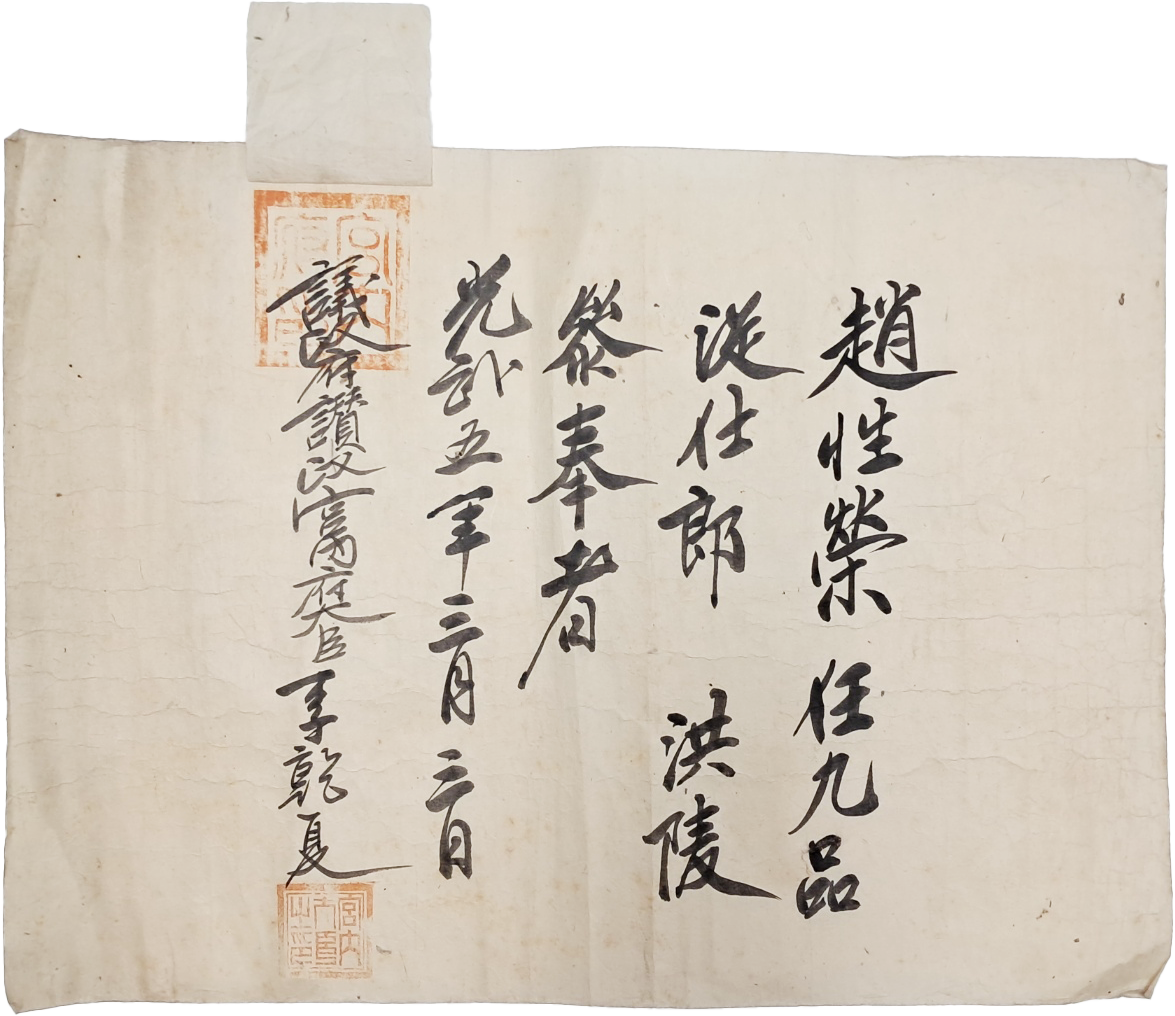 趙性榮 任九品
從仕郎 洪陵
參奉者
光武五年三月三日
議政府讚政宮內府大臣李乾夏
宮內府印
宮內大臣之章